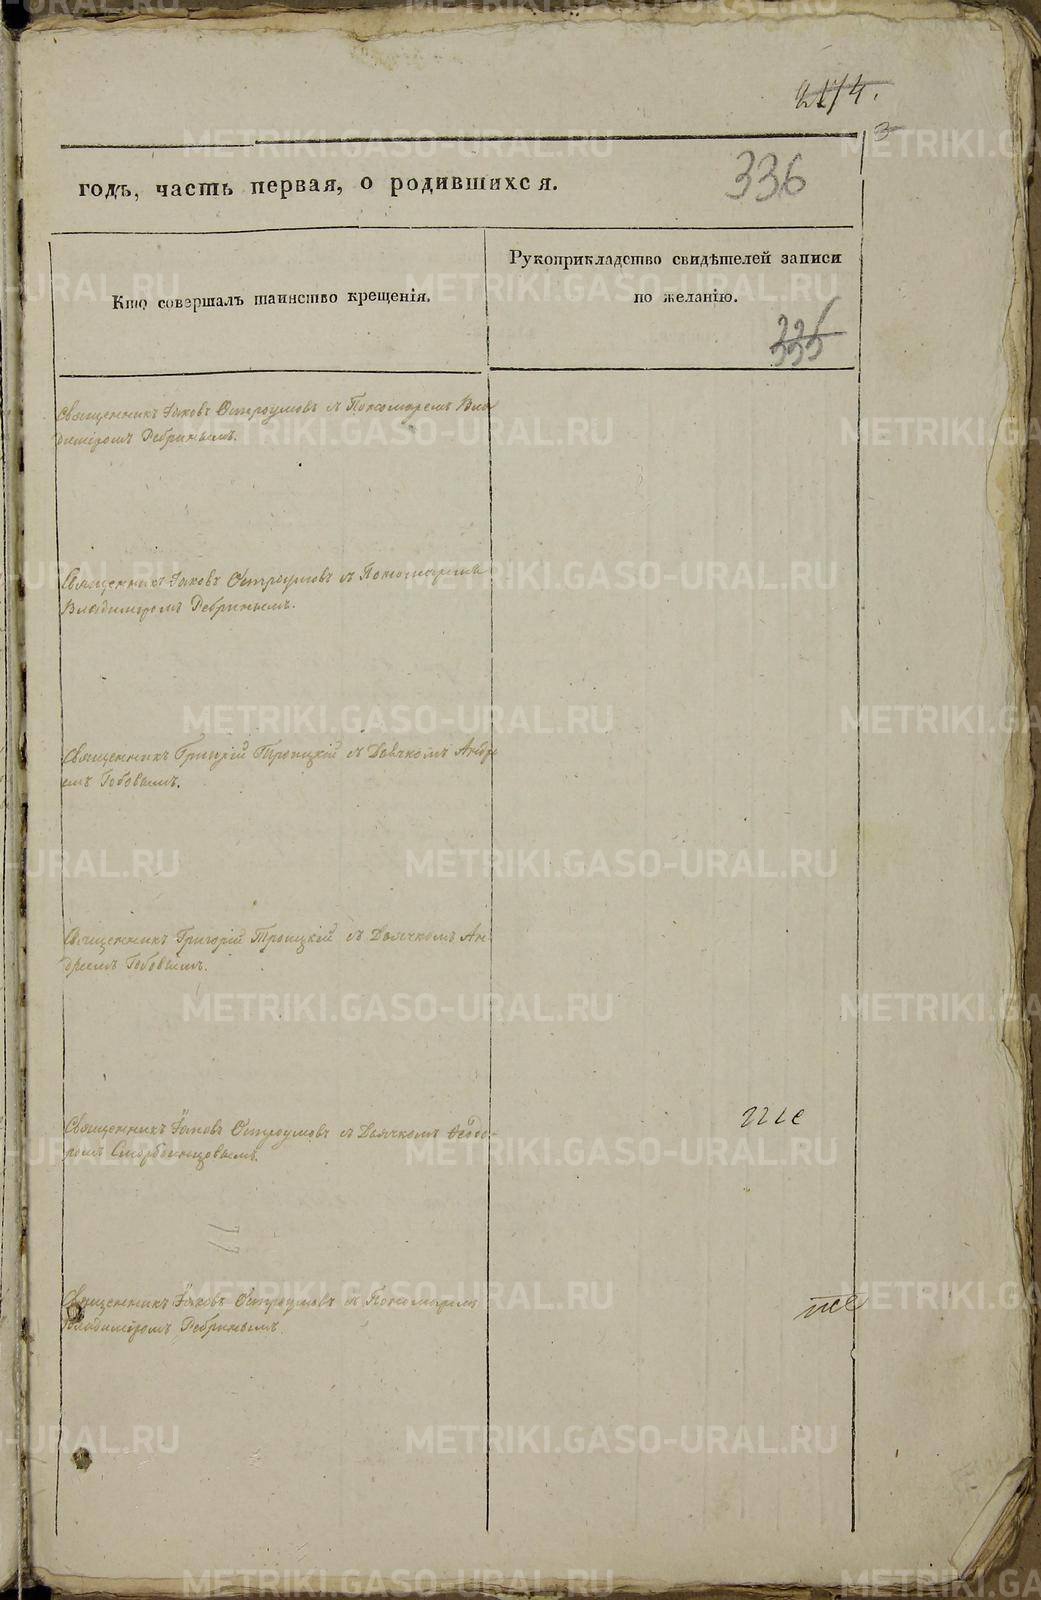 2174.
3
годъ, часть первая, о родившихся.
336
Кто совершалъ таинство крещенія.
Рукоприкладство свидѣтелей записи
по желанію.
335
Священникъ Іаковъ Остроумовъ съ Пономаремъ Вла
димiромъ Ребринымъ.
Священникъ Іаковъ Остроумовъ съ Пономаремъ
Владимiромъ Ребринымъ.
Священникъ Григорій Троицкій съ Дьячкомъ Андре
емъ Бобовымъ.
Священникъ Григорій Троицкій съ Дьячкомъ Ан-
дреемъ Бобовымъ.
Священникъ Іаковъ Остроумовъ съ Дьячкомъ Ѳеодо-
ромъ
Священникъ Іаковъ Остроумовъ съ Пономаремъ
Владимiромъ Ребринымъ.
METRIKI.GASO-URAL.RU